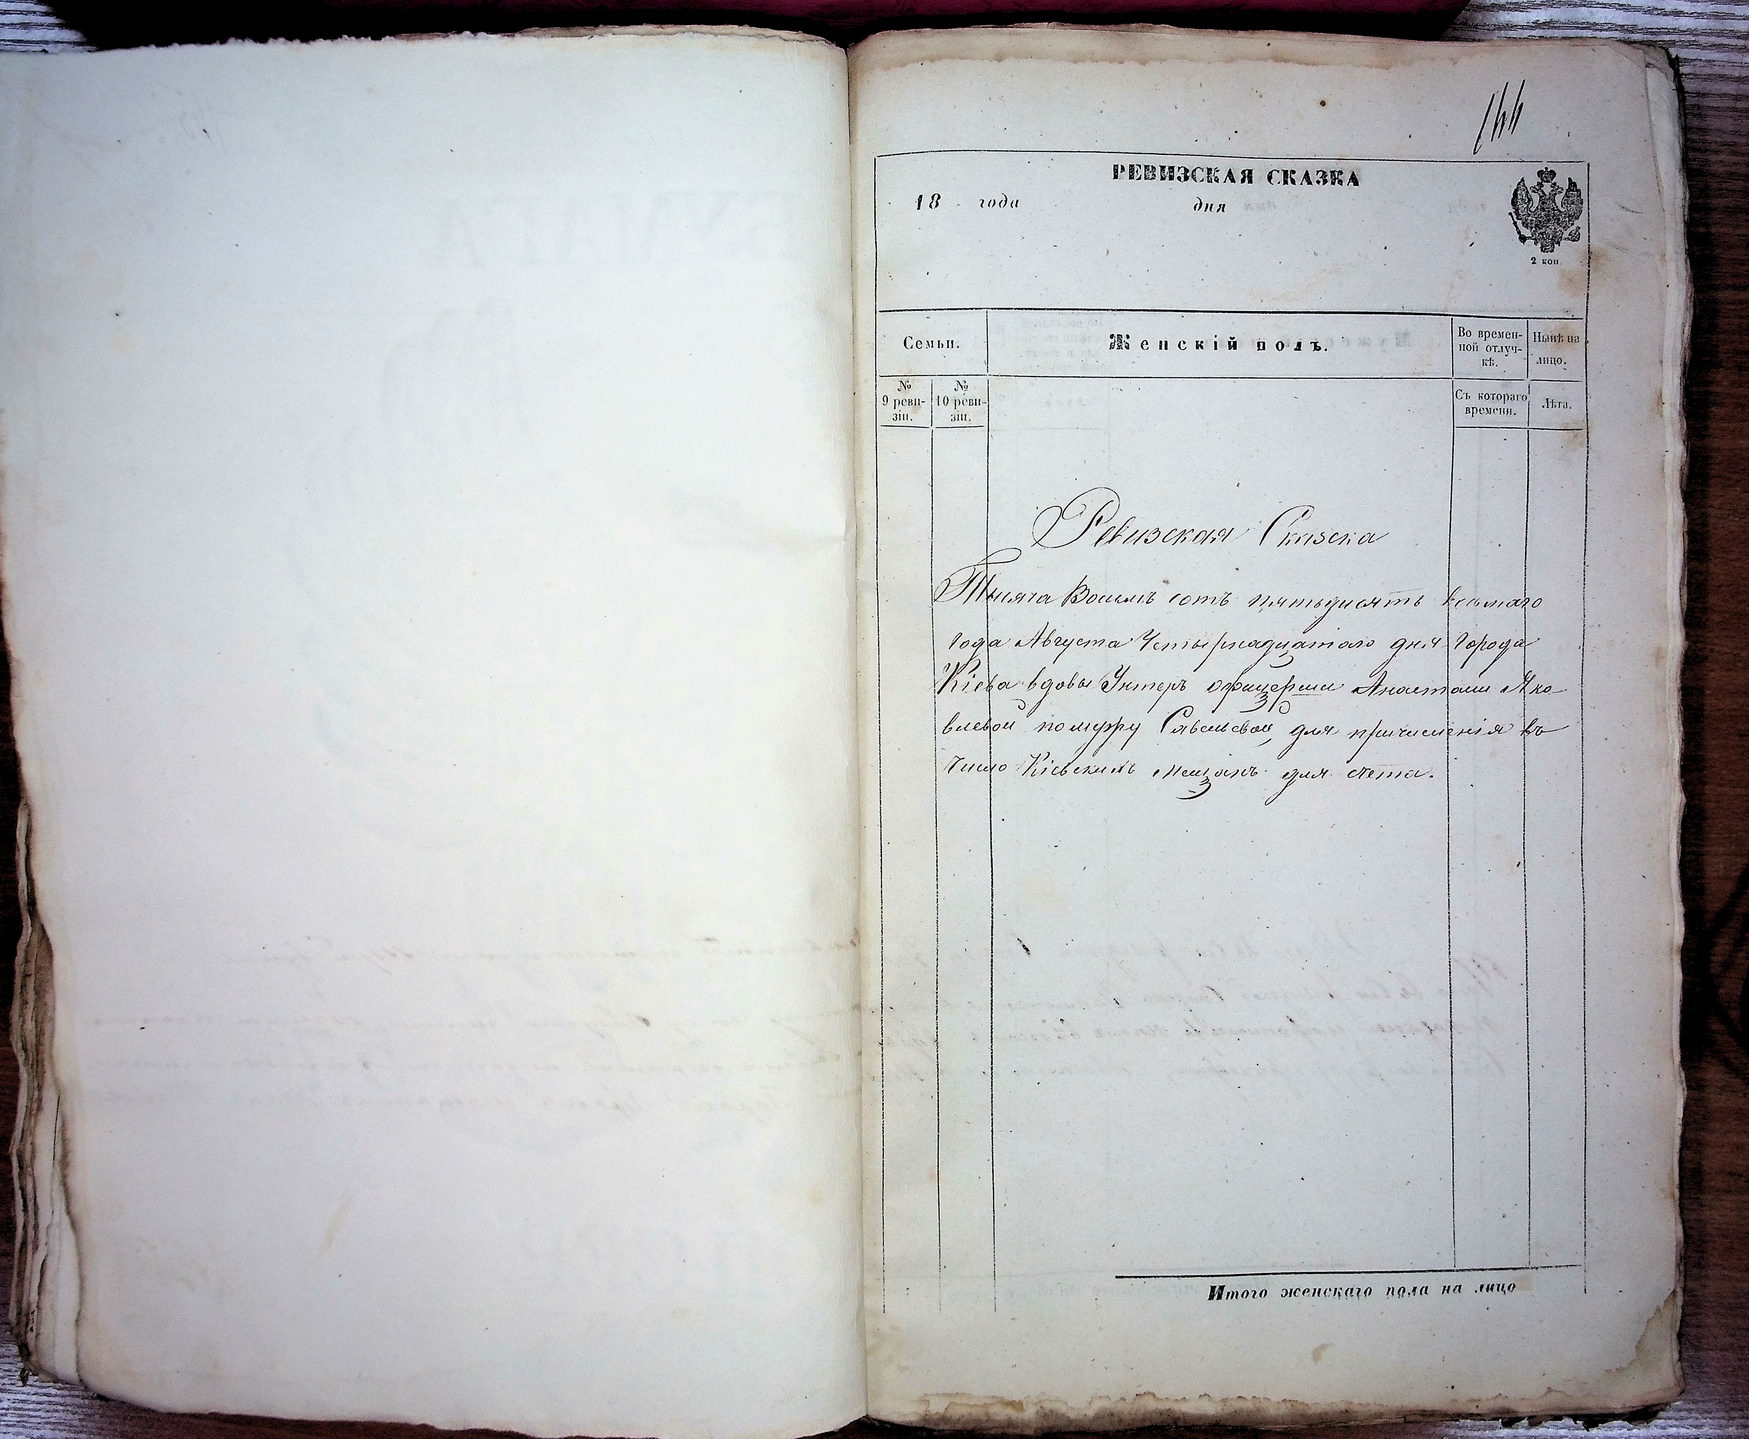 144
РЕВИЗСКАЯ СКАЗКА
18 года дня
2 коп
Семьи. Женскій полъ. Во времен-ной отлуч-кѣ. Нынѣ на лицо.
№ 9 реви-зіи. № 10 реви-зіи. Съ котораго времени. Лѣта.
Ревизская Сказска
Тысяча Восемъ сотъ пятьдисятъ восьмаго
года Августа Четырнадцатаго дня Города
Кіева вдовы Унтеръ офицерши Анастасіи Яко
влевой по мужу Савельевой, для причисленія въ
число Кіевскихъ мещанъ для счета.
Итого женскаго пола на лицо